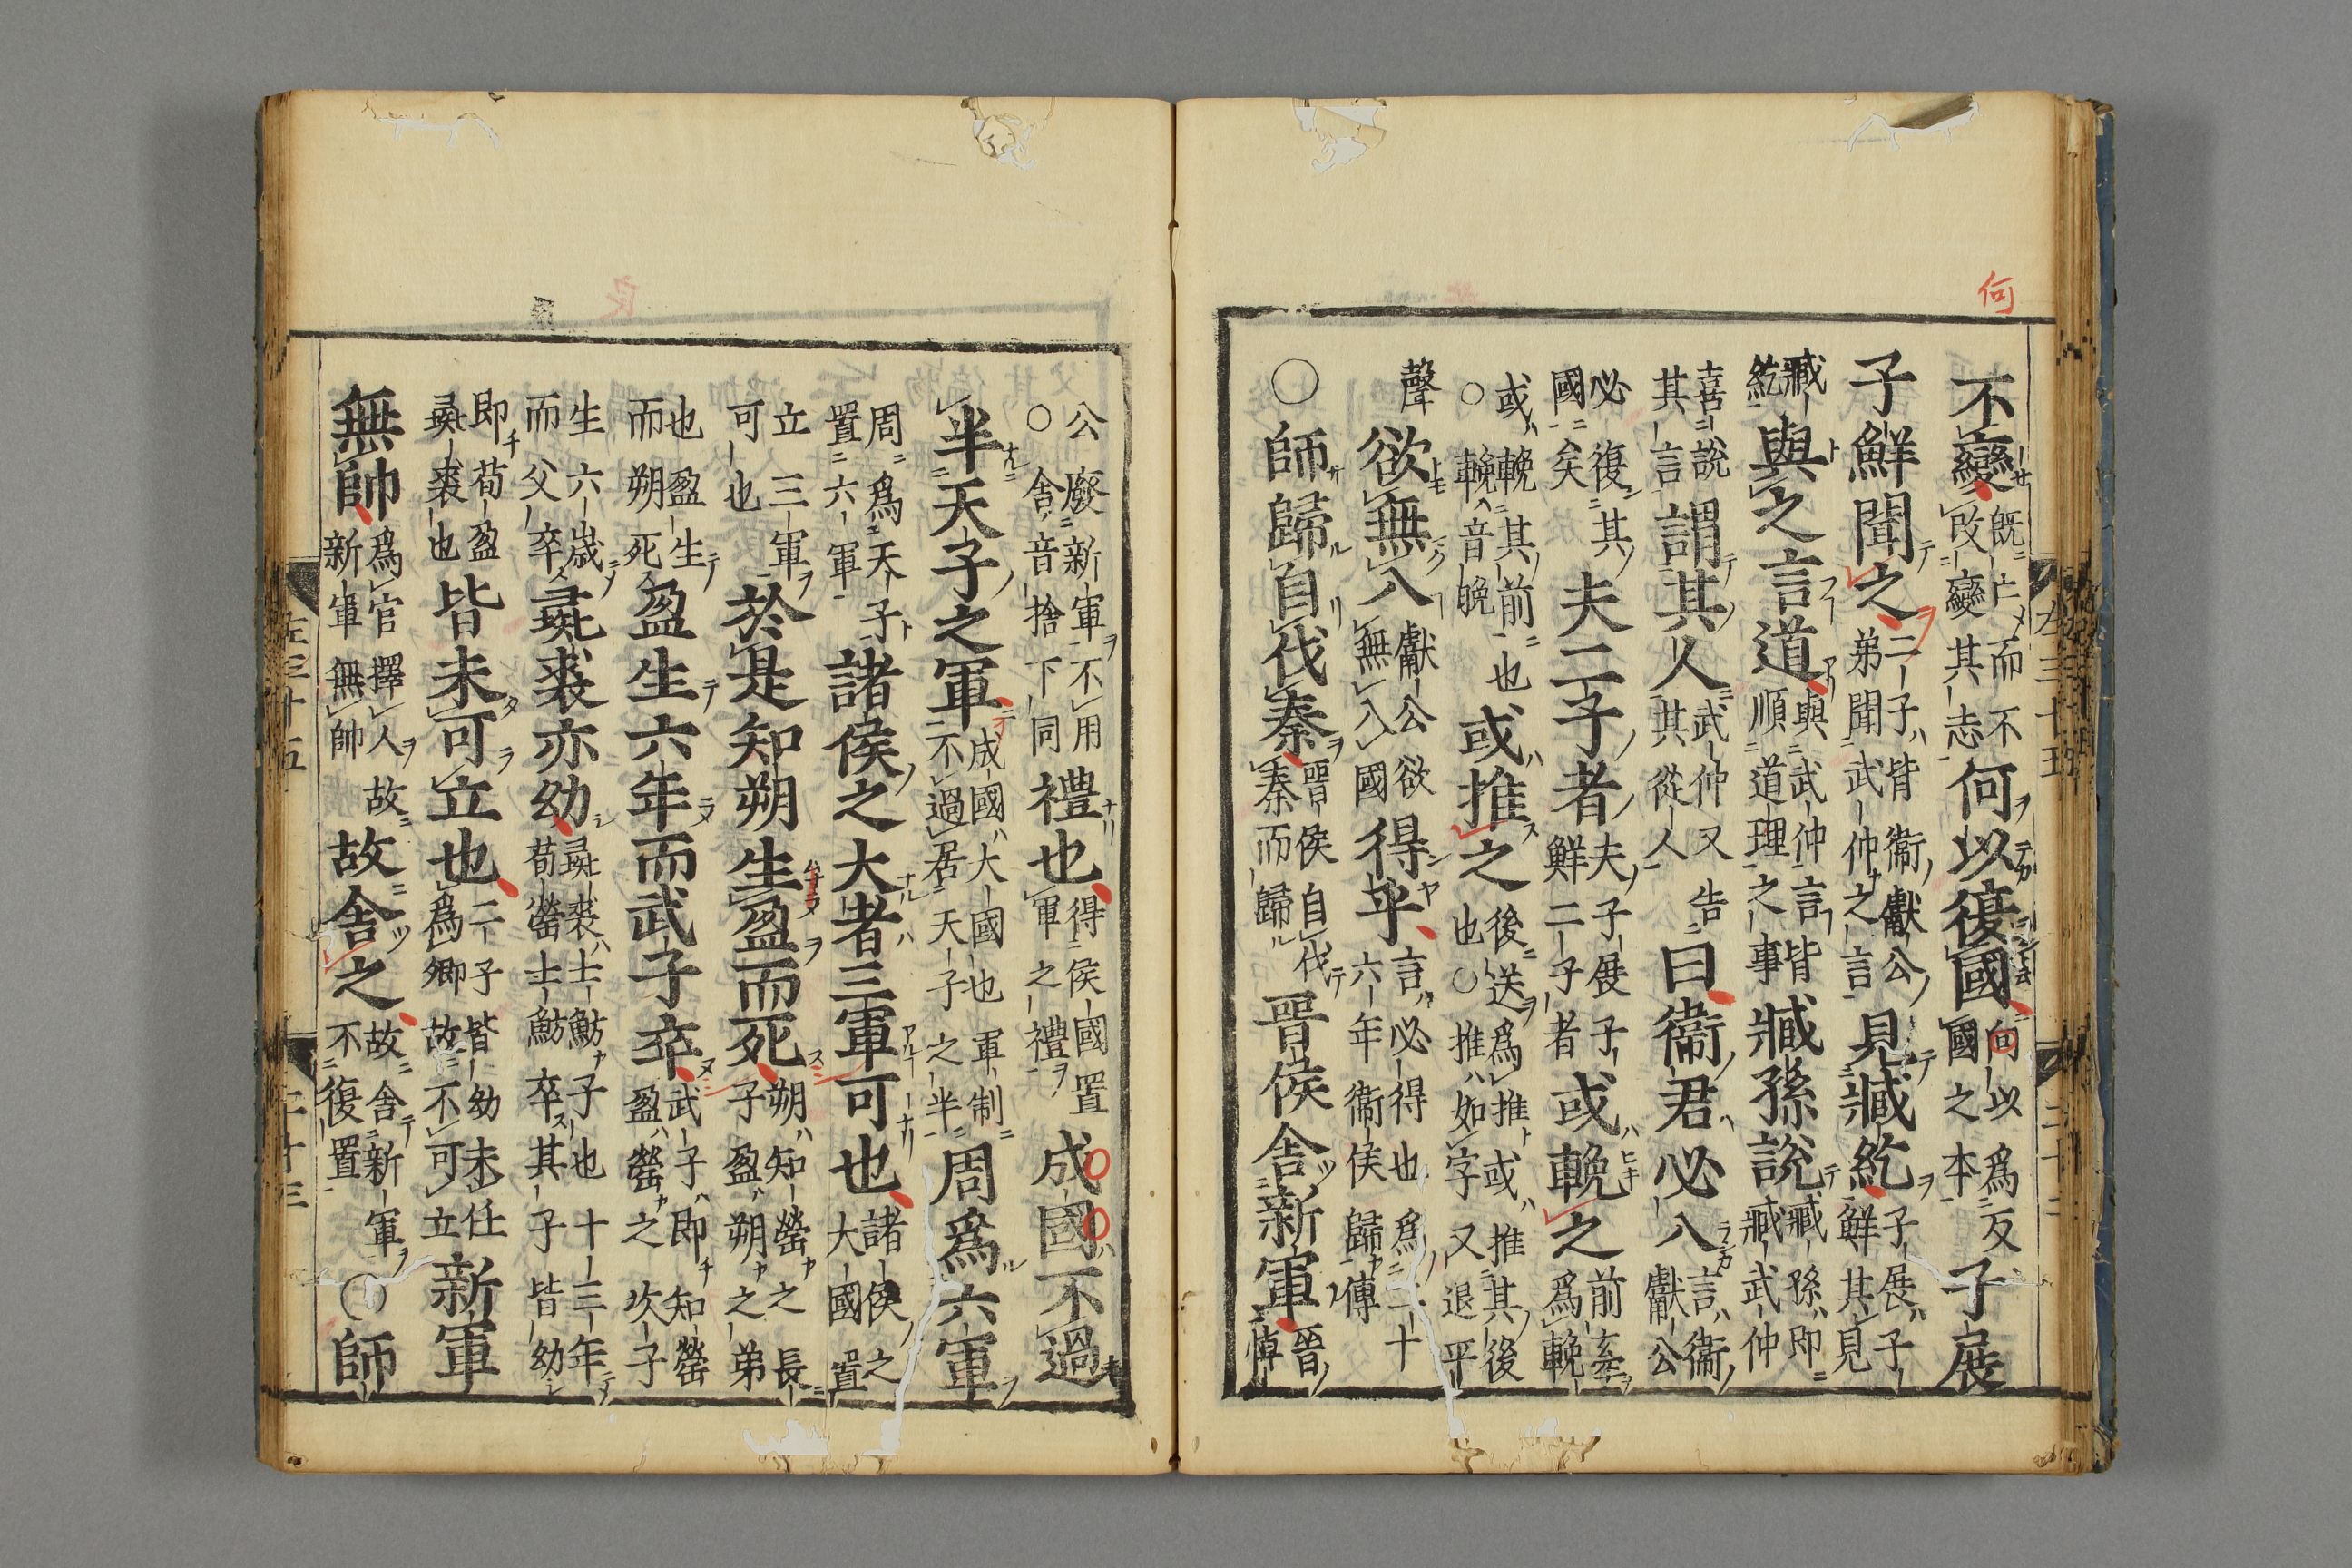 何
不變既亡而不改變其志何以復國何以爲反國之本子展
子鮮聞之二子皆衞獻公弟聞武仲之言見臧紇子展子鮮其見
臧紇與之言道與武仲言皆順道理之事臧孫說臧孫即臧武仲
喜說其言謂其人武仲又告其從人曰衞君必入言衞獻公
必復其國矣夫二子者夫子展子鮮二子者或輓之前牽爲輓
或輓其前也○輓音晩或推之後送爲推或推其後也○推如字又退平
聲欲無入獻公欲無入國得乎言必得也爲二十六年衞侯歸傳
○師歸自伐秦晉侯自伐秦而歸晉侯舍新軍晉悼
公廢新軍不用○舍音捨下同禮也得侯國置軍之禮成國不過
半天子之軍成國大國也軍制不過居天子之半周爲六軍
周爲天子置六軍諸侯之大者三軍可也諸侯之大國置
立三軍可也於是知朔生盈而死朔知罃之長子盈朔之弟
也盈生而朔死盈生六年而武子卒武子即知罃盈罃之次子
生六歲而父卒彘裘亦幼彘裘士魴子也十三年荀罃士魴卒其子皆幼
即荀盈彘裘也皆未可立也二子皆幼未任爲卿故不可立新軍
無帥爲官擇人故新軍無帥故舍之故舍新軍不復置○師
左三十五
二十二
左三十五
二十三